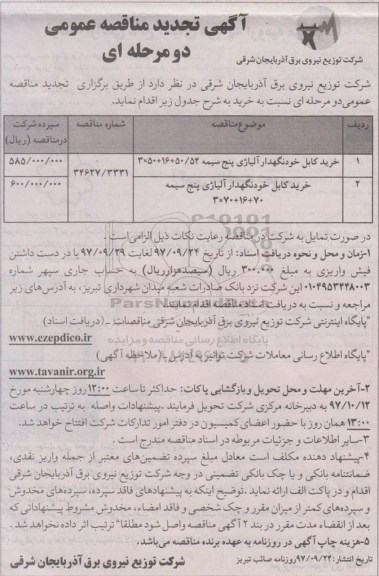 آگهی تجدید مناقصه عمومی
دو مرحله ای
شرکت توزیع نیروی برق آذربایجان شرقی
شرکت توزیع نیروی برق آذربایجان شرقی در نظر دارد از طریق برگزاری تجدید مناقصه
عمومی دو مرحله ای نسبت به خرید به شرح جدول زیر اقدام نماید.
ردیف موضوع مناقصه شماره مناقصه سپرده شرکت درمناقصه (ریال)
۱ خرید کابل خودنگهدار آلیاژی پنج سیمه ۳×۵۰+۱۶+۵۰/۵۴ ۳۴۶۲۷/۳۳۳۱ ۵۸۵/۰۰۰/۰۰۰
۲ خرید کابل خودنگهدار آلیاژی پنج سیمه ۳×۷۰+۱۶+۷۰ ۶۰۰/۰۰۰/۰۰۰
در صورت تمایل به شرکت در مناقصه رعایت نکات ذیل الزامی است.
۱-زمان و محل و نحوه دریافت اسناد: از تاریخ ۹۷/۰۹/۲۴ لغایت ۹۷/۰۹/۲۹ با در دست داشتن
فیش واریزی به مبلغ ۳۰۰.۰۰۰ ریال (سیصدهزارریال) به حساب جاری سپهر شماره
۰۱۰۴۹۵۳۳۴۸۰۰۳ این شرکت نزد بانک صادرات شعبه میدان شهرداری تبریز، به آدرس‌های زیر
مراجعه و نسبت به دریافت اسناد مناقصه اقدام نمایند
"پایگاه اینترنتی شرکت توزیع نیروی برق آذربایجان شرقی مناقصات ـ (دریافت اسناد)
www.ezepdico.ir
"پایگاه اطلاع رسانی معاملات شرکت توانیر به آدرس ـ (ملاحظه آگهی)
www.tavanir.org.ir
۲-آخرین مهلت و محل تحویل وبازگشایی پاکات: حداکثر تا ساعت ۱۲:۰۰ روز چهارشنبه مورخ
۹۷/۱۰/۱۲ به دبیرخانه مرکزی شرکت تحویل فرمایند .پیشنهادات واصله به ترتیب در ساعت
۱۳:۰۰ همان روز با حضور اعضای کمیسیون در دفتر امور تدارکات شرکت افتتاح خواهد شد.
۳-سایر اطلاعات و جزئیات مربوطه در اسناد مناقصه مندرج است .
۴-پیشنهاد دهنده مکلف است معادل مبلغ سپرده تضمین‌های معتبر از جمله واریز نقدی،
ضمانتنامه بانکی و یا چک بانکی تضمینی در وجه شرکت توزیع نیروی برق آذربایجان شرقی
اقدام و در پاکت الف ارائه نماید .توضیح اینکه به پیشنهادهای فاقد سپرده، سپرده‌های مخدوش
و سپرده‌های کمتر از میزان مقرر و چک شخصی و فاقد امضاء، مخدوش مشروط پیشنهاداتی که
بعد از انقضاء مدت مقرر در بند ۲ آگهی مناقصه واصل شود مطلقا" ترتیب اثر داده نخواهد شد .
۵-هزینه چاپ آگهی در روزنامه به عهده برنده مناقصه می‌باشد.
تاریخ انتشار: ۹۷/۰۹/۲۴ روزنامه صائب تبریز شرکت توزیع نیروی برق آذربایجان شرقی
پایگاه اطلاع رسانی مناقصه و مزایده